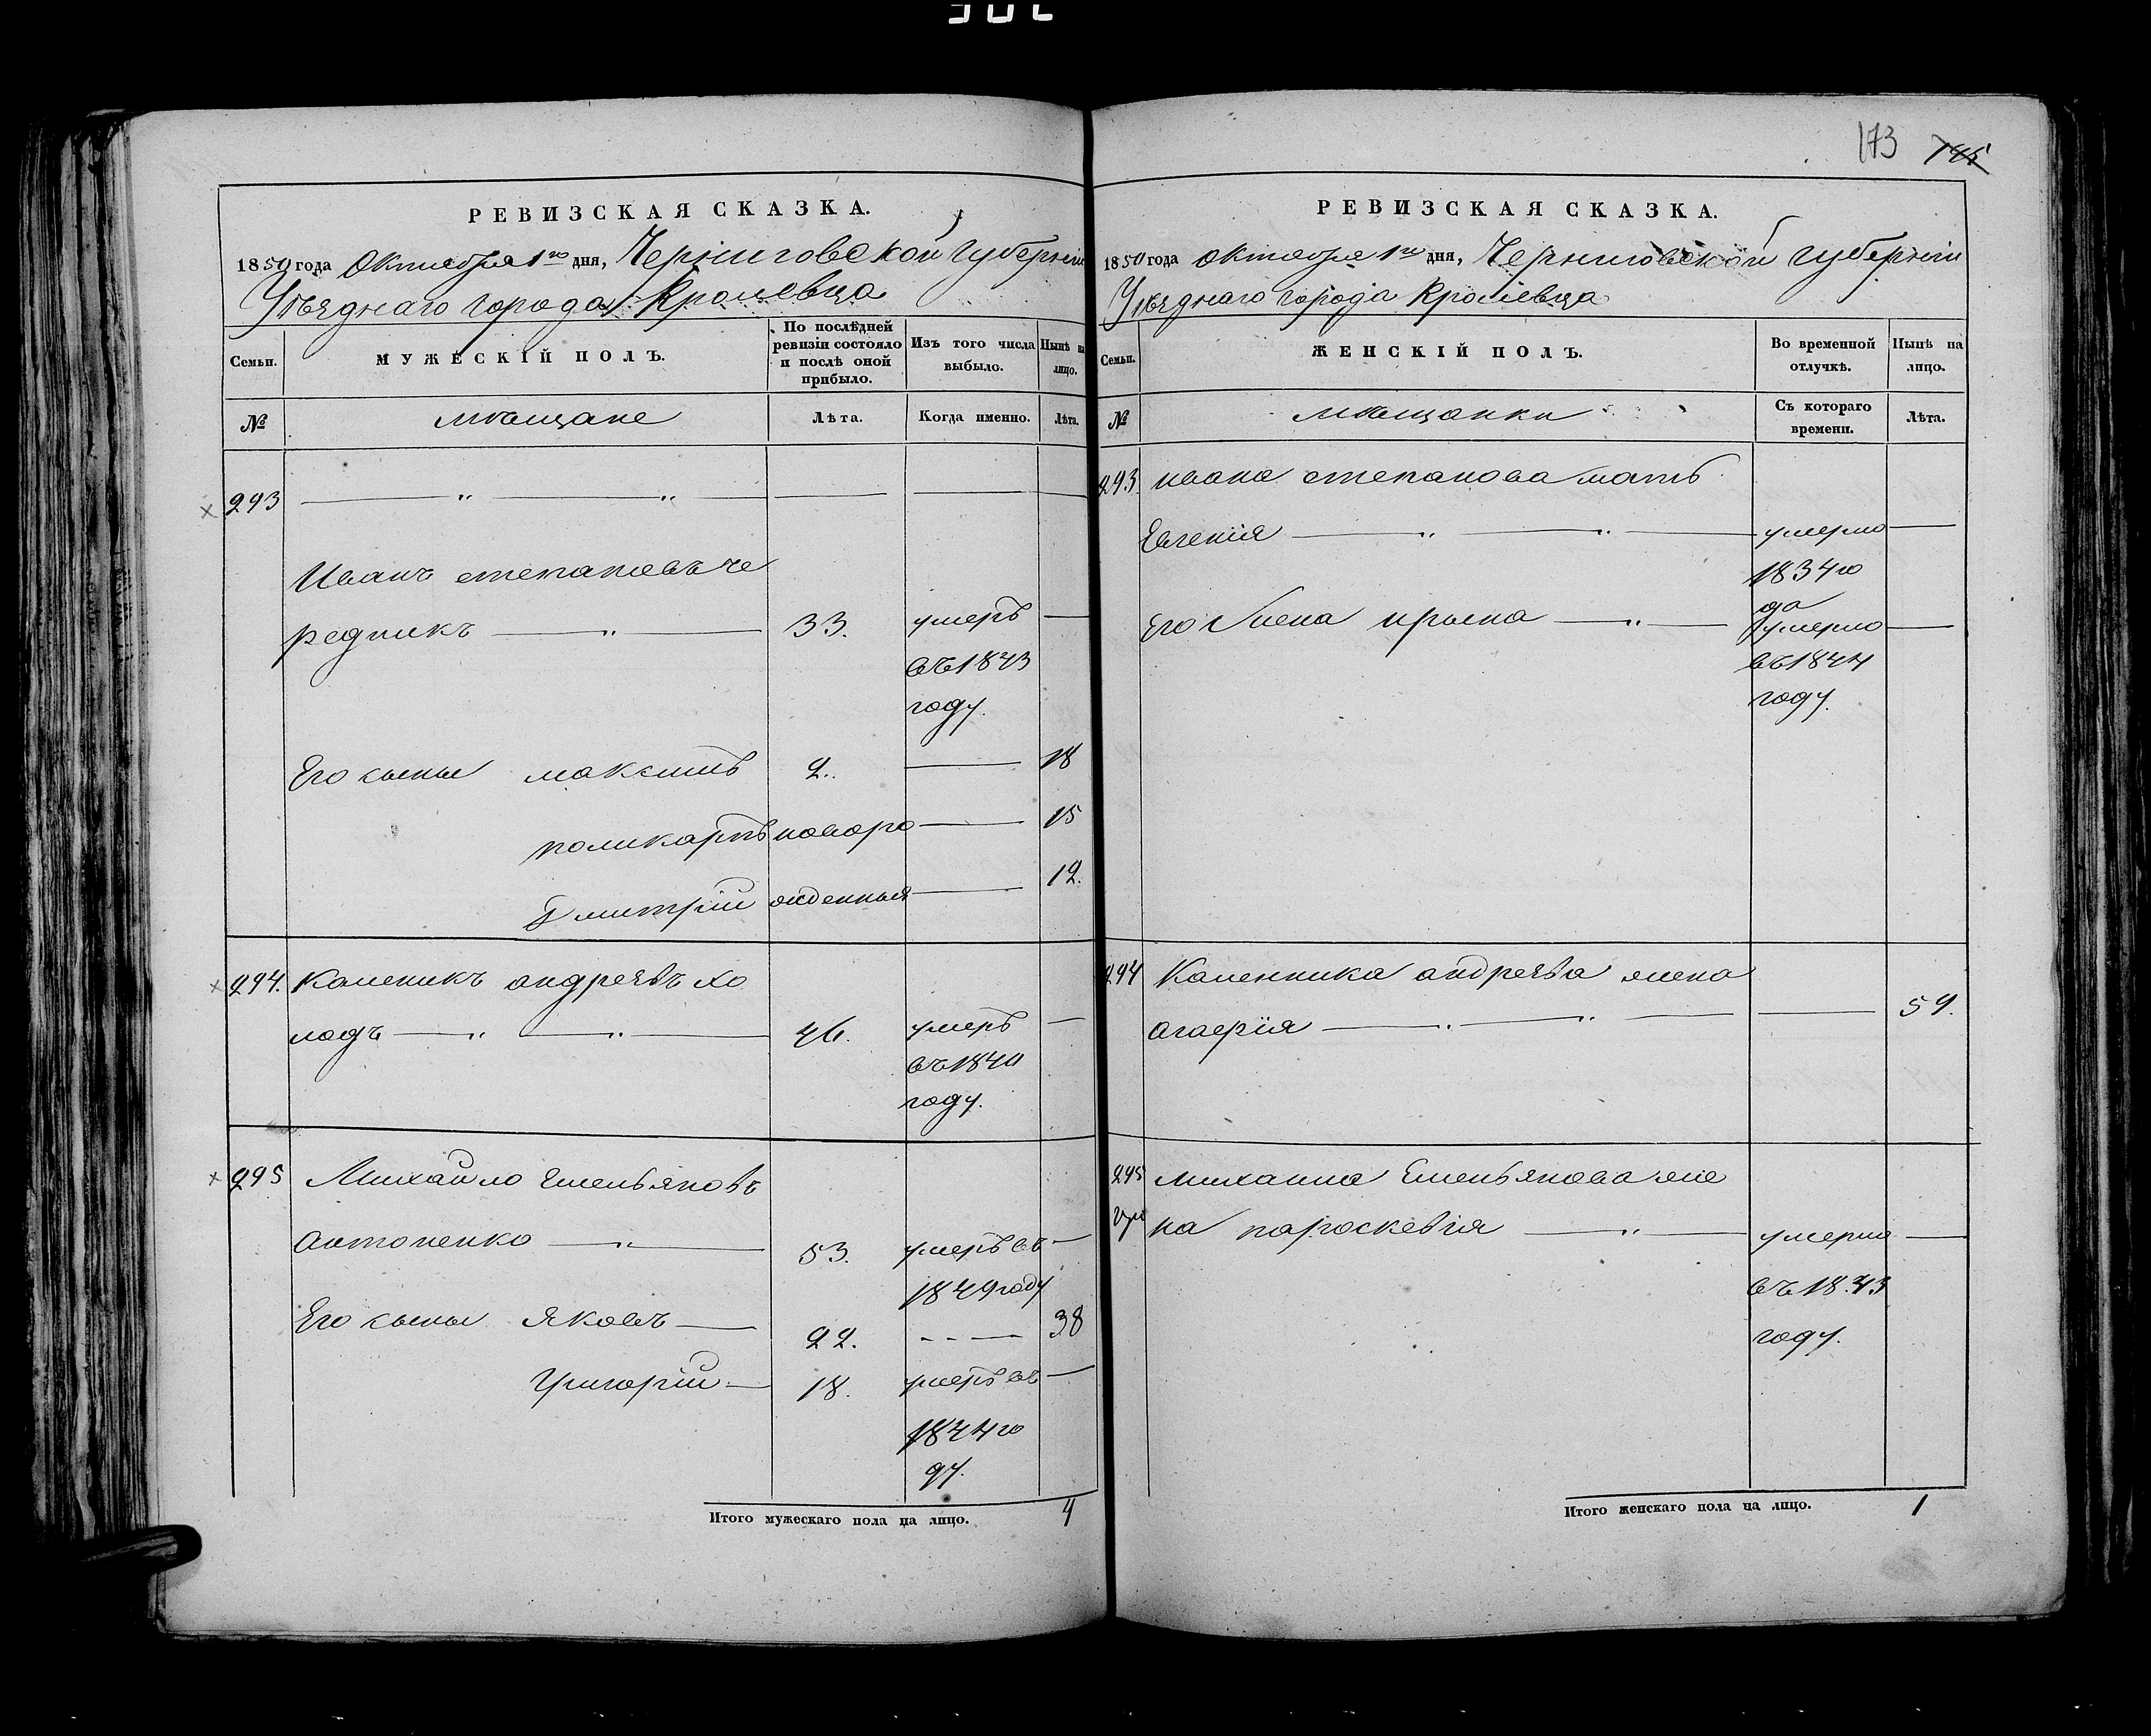 173 145
РЕВИЗСКАЯ СКАЗКА.
1850 года Октября 1го дня, Черниговской губерніи
Уѣзднаго города Кролевца
Семьи. МУЖЕСКІЙ ПОЛЪ. По послѣдней ревизіи состояло и послѣ оной прибыло. Изъ того числа выбыло. Нынѣ на лицо.
№ мѣщане Лѣта. Когда именно. Лѣта.
293
Иванъ степановъ че
редникъ 33. умеръ
въ 1843
году.
Его сыны максимъ 2. 18
поликарпъ новоро 15
Дмитрій жденныя 12.
294. Каленикъ андреевъ хо
лодъ 46. умеръ
въ 1840
году.
295 Михайло Емельяновъ
Антоненко 53. умеръ въ
1849 году
Его сыны Яковъ 22. 38
Григорій 18. умеръ въ
1844 го
ду.
Итого мужескаго пола на лицо. 4
РЕВИЗСКАЯ СКАЗКА.
1850 года октября 1го дня, Черниговской губерніи
Уѣзднаго города Кролевца
Семьи. ЖЕНСКІЙ ПОЛЪ. Во временной отлучкѣ. Нынѣ на лицо.
№ мѣщанки Съ котораго времени. Лѣта.
293. ивана степанова мать
Евгенія умерла
1834 го
да
Его жена ирына умерла
въ 1844
году.
294 Каленика андреева жена
агафія 59.
295 михаила Емельянова же
на параскевія умерла
въ 1843
году.
Итого женскаго пола на лицо. 1